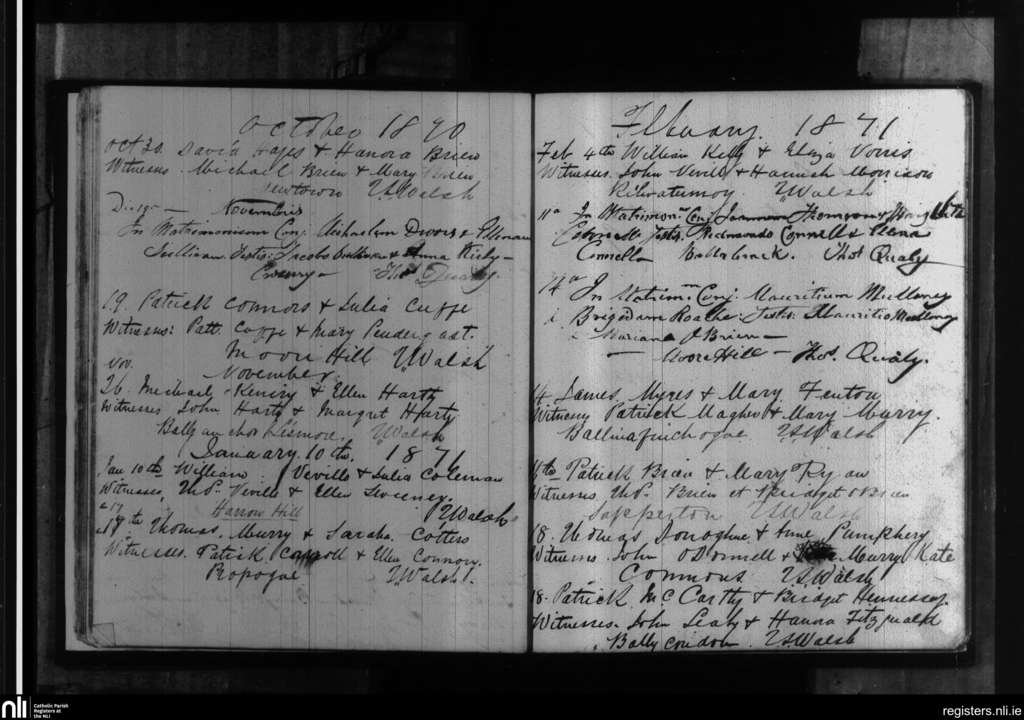 October 1870
Oct 30. David Hayes & Hanora Brien
Witnesses. Michael Brien & Mary Brien
Newtown W Walsh
November
In Matrimonium Conj.
Sullivan Testis: Jacobo Sullivan & Anna
Thos Qualy.
19. Patrick Connors & Julia Cuffe
Witness: Patt. Cuffe & Mary Pendergast.
Moore Hill W. Walsh
Nov.
November.
26. Michael Keniry & Ellen Harty
Witnesses John Harty & Margret Harty
Ballyanchor Lismore. Walsh
January 10th. 1871
Jan 10th William Neville & Julia Coleman
Witnesses, Neville & Ellen Sweeney.
Harrow Hill Walsh
17th Thomas. Murry & Sarah. Cotters
Witnesses. Patrick Carroll & Ellen Connory.
Ropogue Walsh.
Febuary. 1871
Feb 4th William Kelly & Eliza
Witnesses. John Nevill & Hannah Morrison
Kilwatermoy Walsh
11a In Matrimon. Conj. 16th
Connell Testis. Redmundo Connell & Elena
Connell Thos Qualy
14a In Matrim. Conj. Mauritium Mulloney
Brigidum Roache: Testis: Mauritio Mulloney
& Mariana O'Brien
— Moore Hill — Thos. Qualy.
14 James Myres & Mary Fenton
Witness Patrick Magher & Mary Murry.
Ballinafinchogue Walsh
Patrick Brien & Mary Ryan
Witnesses Brien et Bridget OBrien
Sapperton Walsh
18. Thomas Donoghue & Anne Pumphery
Witness. John O Donnell & Murry Kate
Connors Walsh
18. Patrick Mc Carthy & Bridget Hennessey.
Witnesses. John Leahy & Hanna Fitzgerald
Walsh
nli
Catholic Parish
Registers at
the NLI
registers.nli.ie